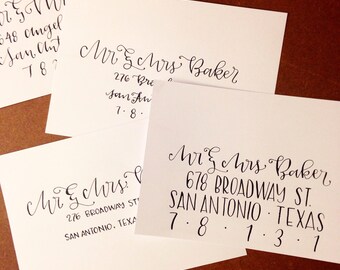 648 Angel
San Ant
7 8
Mr & Mrs Baker
276 Bro
San An
7 · 8 ·
Mr & Mrs B
276 BROADWAY ST.
SAN ANTONIO · TEXAS
Mr & Mrs Baker
678 BROADWAY ST.
SAN ANTONIO · TEXAS
7 · 8 · 1 · 3 · 1